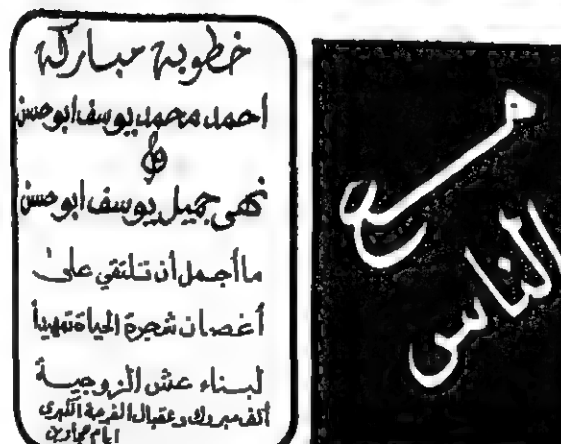 خطوبة مباركة
احمد محمد يوسف ابو حسن
&
نهى جميل يوسف ابو حسن
ما أجمل أن تلتقي على
أغصان شجرة الحياة تهيأ
لبناء عش الزوجية
ألف مبروك وعقبال الفرحة الكبرى
مع
الناس